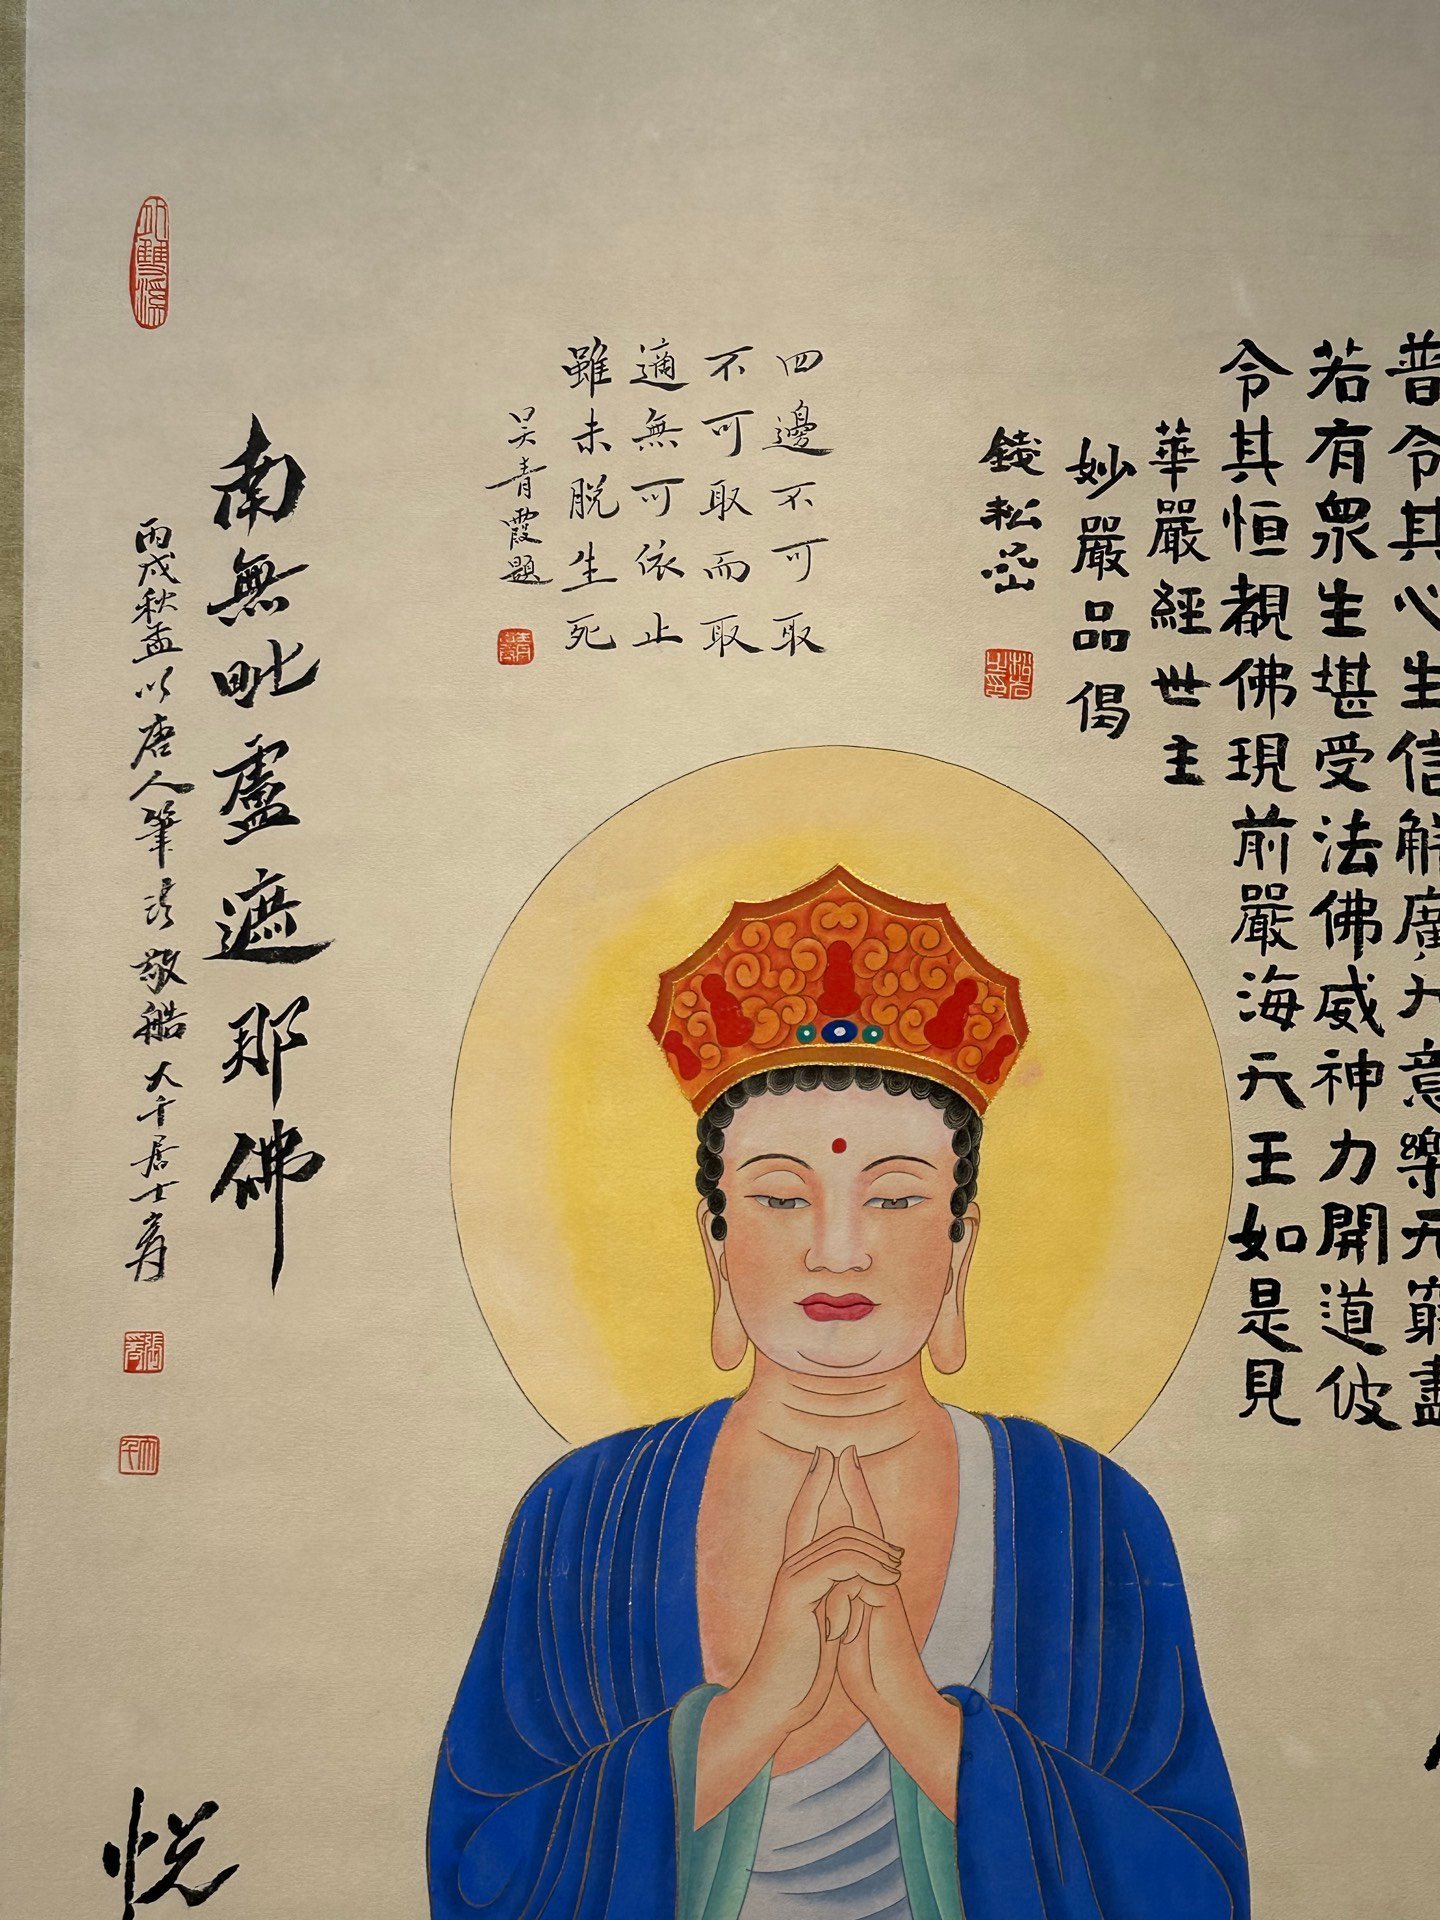 普令其心生信解廣大意樂无窮盡
若有眾生堪受法佛威神力開道彼
令其恒覩佛現前嚴海天王如是見
華嚴經世主
妙嚴品偈
錢松嵒
四邊不可取
不可取而取
適無可依止
雖未脫生死
吳青霞題
南無毗盧遮那佛
丙戌秋孟以唐人筆法敬船大千居士爰
悅